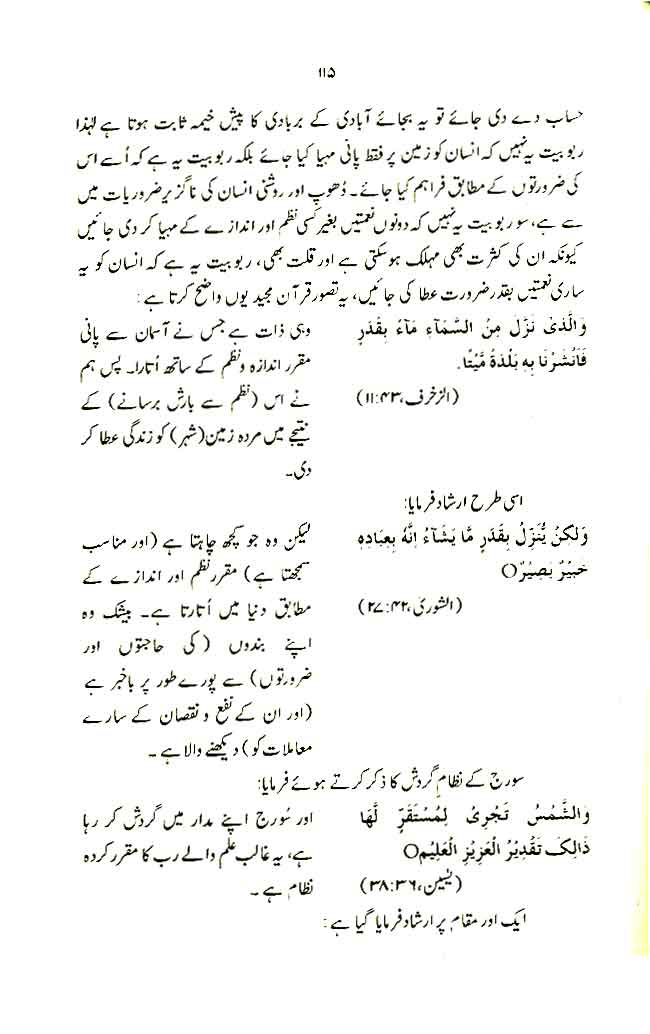 ۱۱۵
حساب دے دی جائے تو یہ بجائے آبادی کے بربادی کا پیش خیمہ ثابت ہوتا ہے لہٰذا
ربوبیت یہ نہیں کہ انسان کو زمین پر فقط پانی مہیا کیا جائے بلکہ ربوبیت یہ ہے کہ اُسے اس
کی ضرورتوں کے مطابق فراہم کیا جائے۔ دُھوپ اور روشنی انسان کی ناگزیر ضروریات میں
سے ہے، سو ربوبیت یہ نہیں کہ دونوں نعمتیں بغیر کسی نظم اور اندازے کے مہیا کر دی جائیں
کیونکہ ان کی کثرت بھی مہلک ہوسکتی ہے اور قلت بھی، ربوبیت یہ ہے کہ انسان کو یہ
ساری نعمتیں بقدر ضرورت عطا کی جائیں، یہ تصور قرآن مجید یوں واضح کرتا ہے:
وَالَّذِیْ نَزَّلَ مِنَ السَّمَآءِ مَآءً بِقَدَرٍ
فَاَنْشَرْنَا بِهٖ بَلْدَةً مَّیْتًا.
(الزخرف، ۴۳:۱۱)
وہی ذات ہے جس نے آسمان سے پانی
مقرر اندازہ و نظم کے ساتھ اُتارا۔ پس ہم
نے اس (نظم سے بارش برسانے) کے
نتیجے میں مردہ زمین (شہر) کو زندگی عطا کر
دی۔
اسی طرح ارشاد فرمایا:
وَلٰکِنْ یُّنَزِّلُ بِقَدَرٍ مَّا یَشَآءُ اِنَّهٗ بِعِبَادِهٖ
خَبِیْرٌ بَصِیْرٌO
(الشوریٰ، ۴۲:۲۷)
لیکن وہ جو کچھ چاہتا ہے (اور مناسب
سمجھتا ہے) مقرر نظم اور اندازے کے
مطابق دنیا میں اُتارتا ہے۔ بیشک وہ
اپنے بندوں (کی حاجتوں اور
ضرورتوں) سے پورے طور پر باخبر ہے
(اور ان کے نفع و نقصان کے سارے
معاملات کو) دیکھنے والا ہے۔
سورج کے نظامِ گردش کا ذکر کرتے ہوئے فرمایا:
وَالشَّمْسُ تَجْرِیْ لِمُسْتَقَرٍّ لَّهَا
ذَالِکَ تَقْدِیْرُ الْعَزِیْزِ الْعَلِیْمِO
(یٰسین، ۳۶:۳۸)
اور سُورج اپنے مدار میں گردش کر رہا
ہے، یہ غالب علم والے رب کا مقرر کردہ
نظام ہے۔
ایک اور مقام پر ارشاد فرمایا گیا ہے: